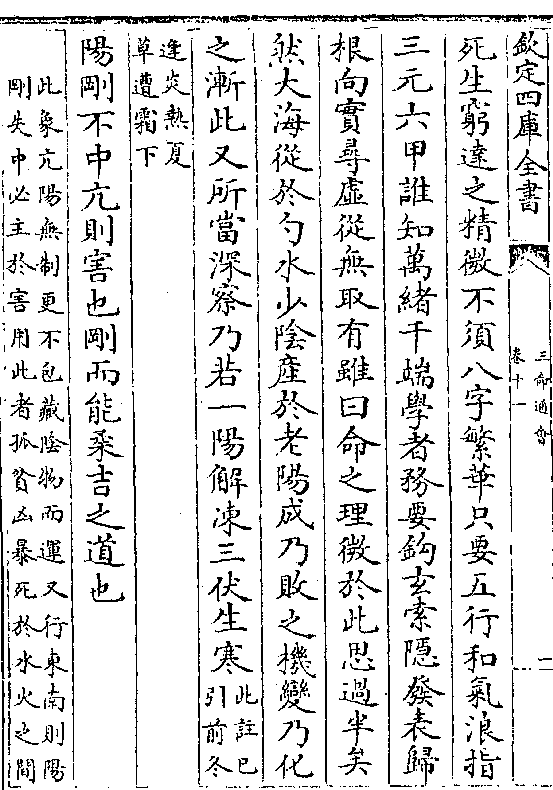 欽定四庫全書
三命通會
卷十一
死生窮達之精微不須八字繁華只要五行和氣浪指
三元六甲誰知萬緒千端學者務要鈎玄索隱發表歸
根向實尋虛從無取有雖曰命之理微於此思過半矣
然大海從於勺水少陰産於老陽成乃敗之機變乃化
之漸此又所當深察乃若一陽解凍三伏生寒
此註已
引前冬
逢炎熱夏
草遭霜下
陽剛不中亢則害也剛而能柔吉之道也
此象亢陽無制更不包藏陰物而運又行東南則陽
剛失中必主於害用此者孤貧凶暴死於水火之間